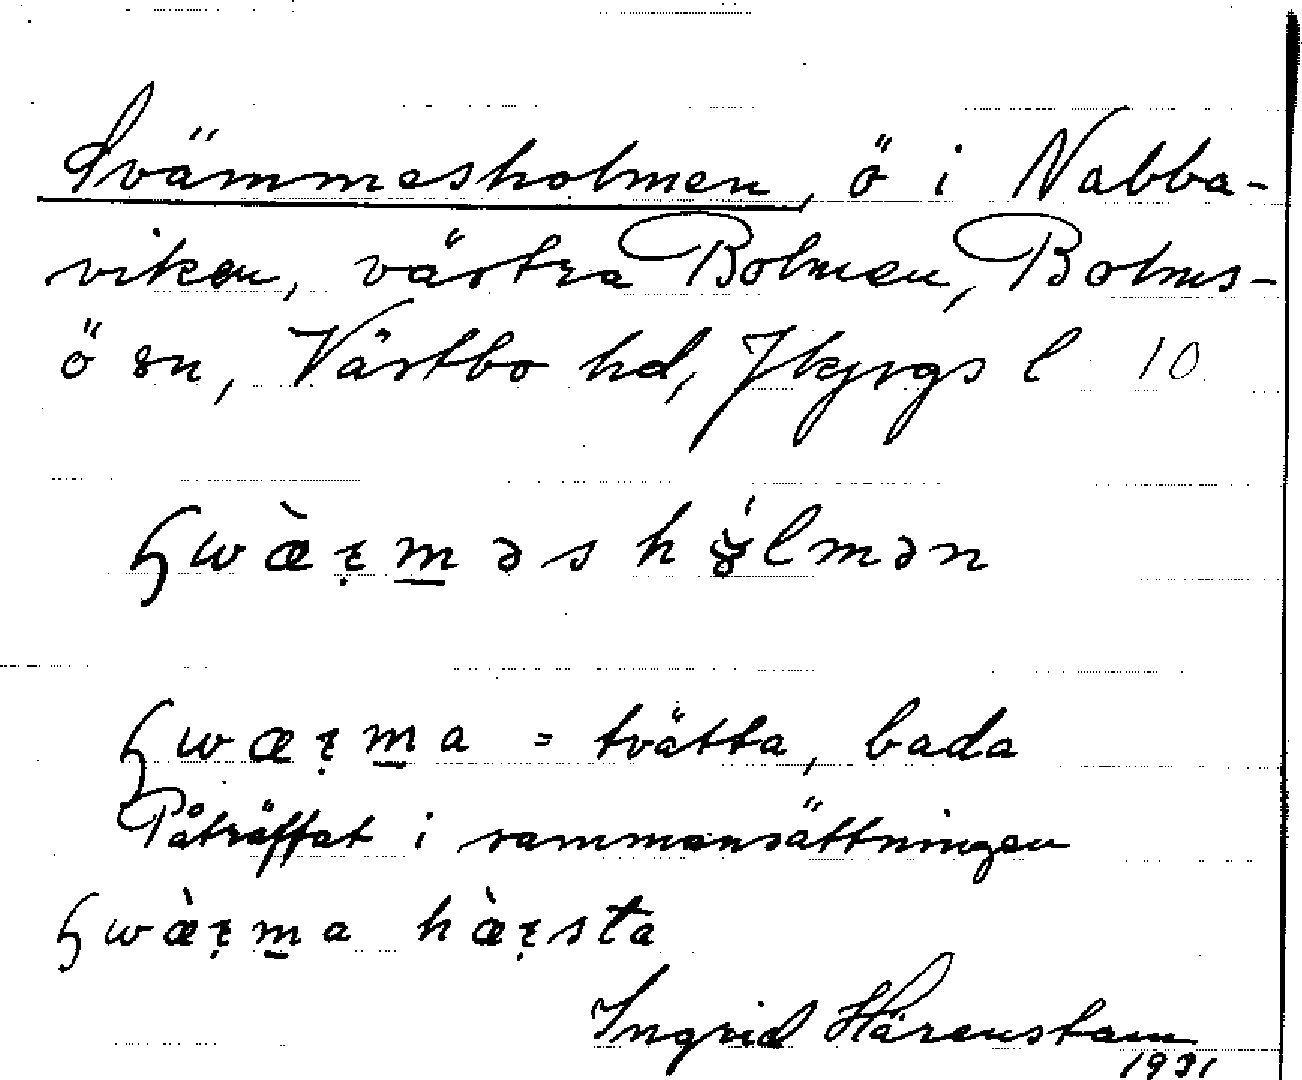 Svämmesholmen, ö i Nabba-
viken, västra Bolmen, Bolms-
ö sn, Västbo hd, Jkpgs l 10
ꞕwæ̀ɽm̲əs hɤ́lmən
ꞕwæɽm̲a = tvätta, bada
Påträffat i sammansättningen
ꞕwæ̀ɽm̲a hæ̀ɽsta
Ingrid Härenstam
1931